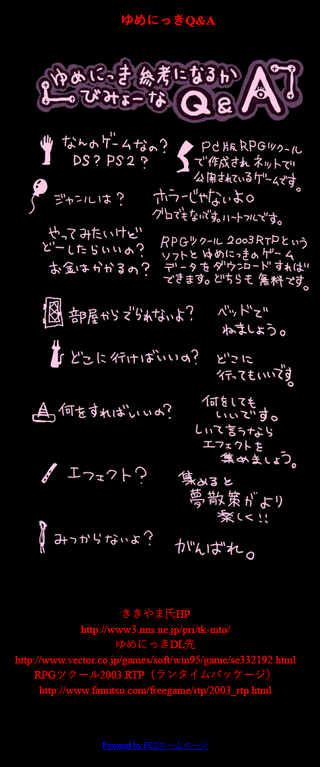 ゆめにっきQ&A
ゆめにっき 参考になるか
びみょーな Q&A
なんのゲームなの?
DS? PS2?
Pc版RPGツクール
で作成され ネットで
公開されているゲームです。
ジャンルは?
ホラーじゃないよ。
グロでもないです。ハートフルです。
やってみたいけど
どーしたらいいの?
お金はかかるの?
RPGツクール2003RTPという
ソフトと ゆめにっきのゲーム
データをダウンロードすれば
できます。どちらも 無料です。
部屋からでられないよ?
ベッドで
ねましょう。
どこに行けばいいの?
どこに
行ってもいいです。
何をすればいいの?
何をしても
いいです。
しいて言うなら
エフェクトを
集めましょう。
エフェクト?
集めると
夢散策がより
楽しく!!
みつからないよ?
がんばれ。
ききやま氏HP
http://www3.nns.ne.jp/pri/tk-mto/
ゆめにっきDL先
http://www.vector.co.jp/games/soft/win95/game/se332192.html
RPGツクール2003 RTP（ランタイムパッケージ）
http://www.famitsu.com/freegame/rtp/2003_rtp.html
Powered by FC2ホームページ